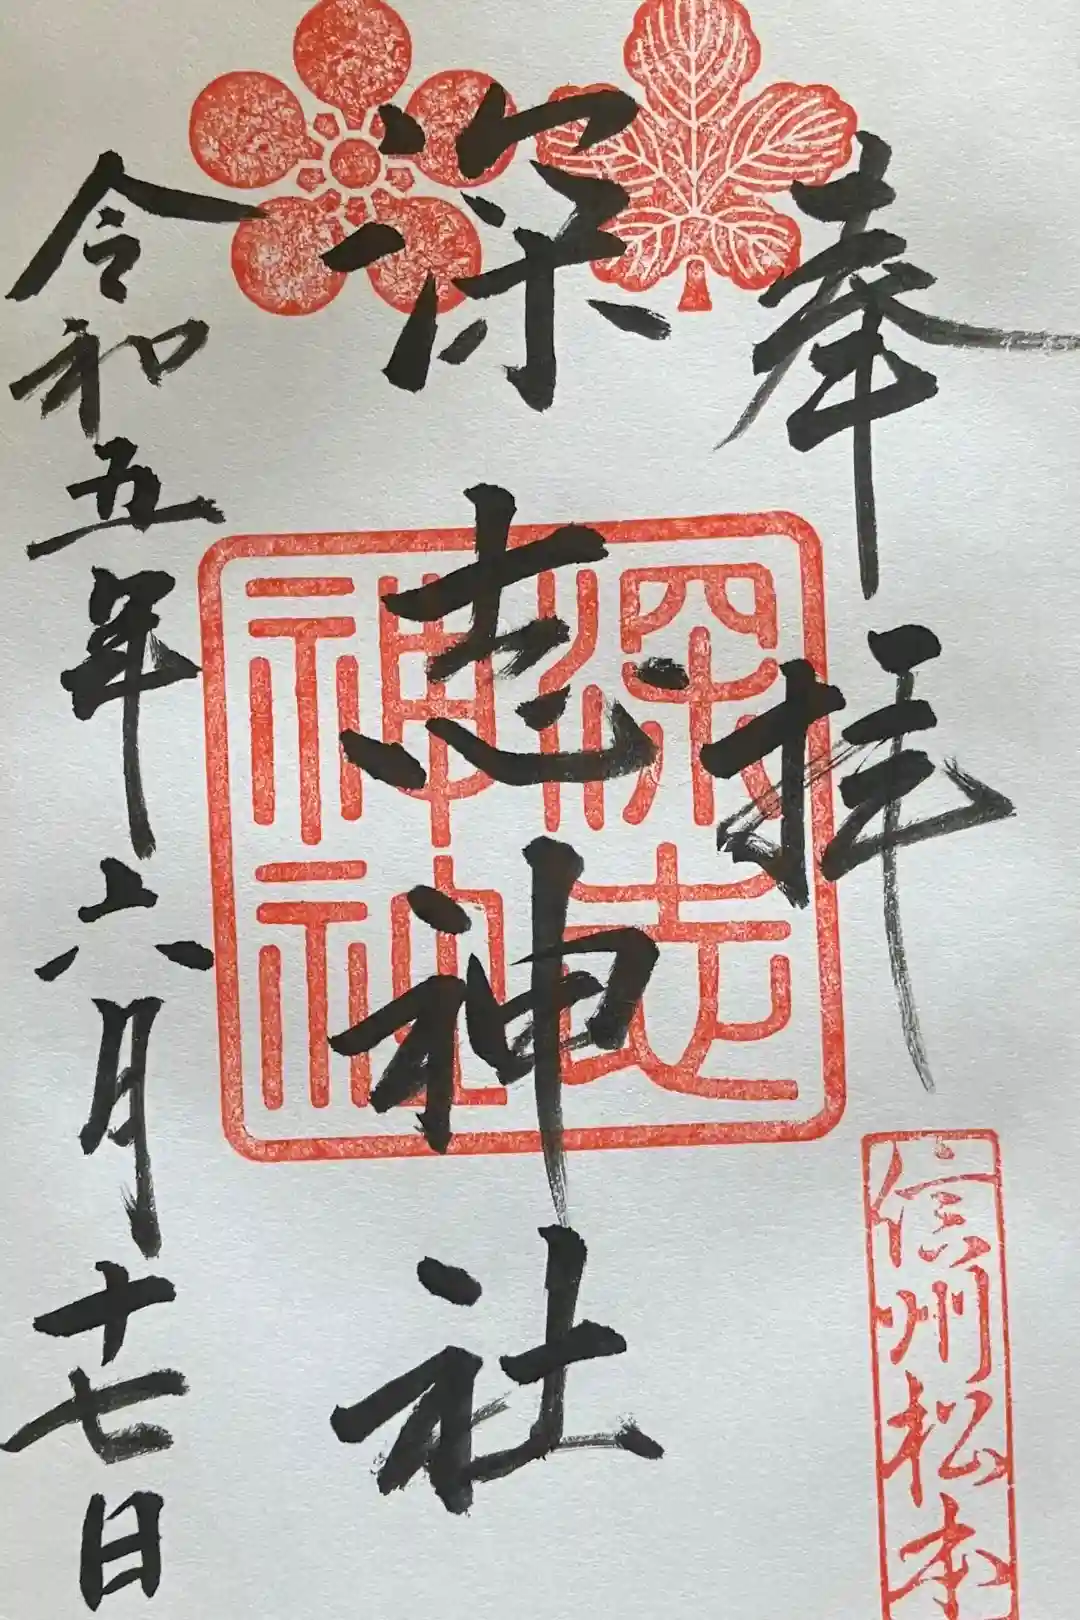 奉拝
信州松本
深志神社
深志
神社
令和五年六月十七日